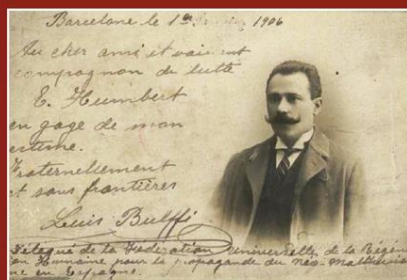 Barcelone le 1er 1906
Au cher ami et vaillant
compagnon de lutte
E. Humbert
en gage de mon
estime.
Fraternellement
et sans frontières
Luis Bulffi
Délégué de la Fédération Universelle de la Régéné
on Humaine pour la propagande du Néo-Malthusia
me en Espagne.